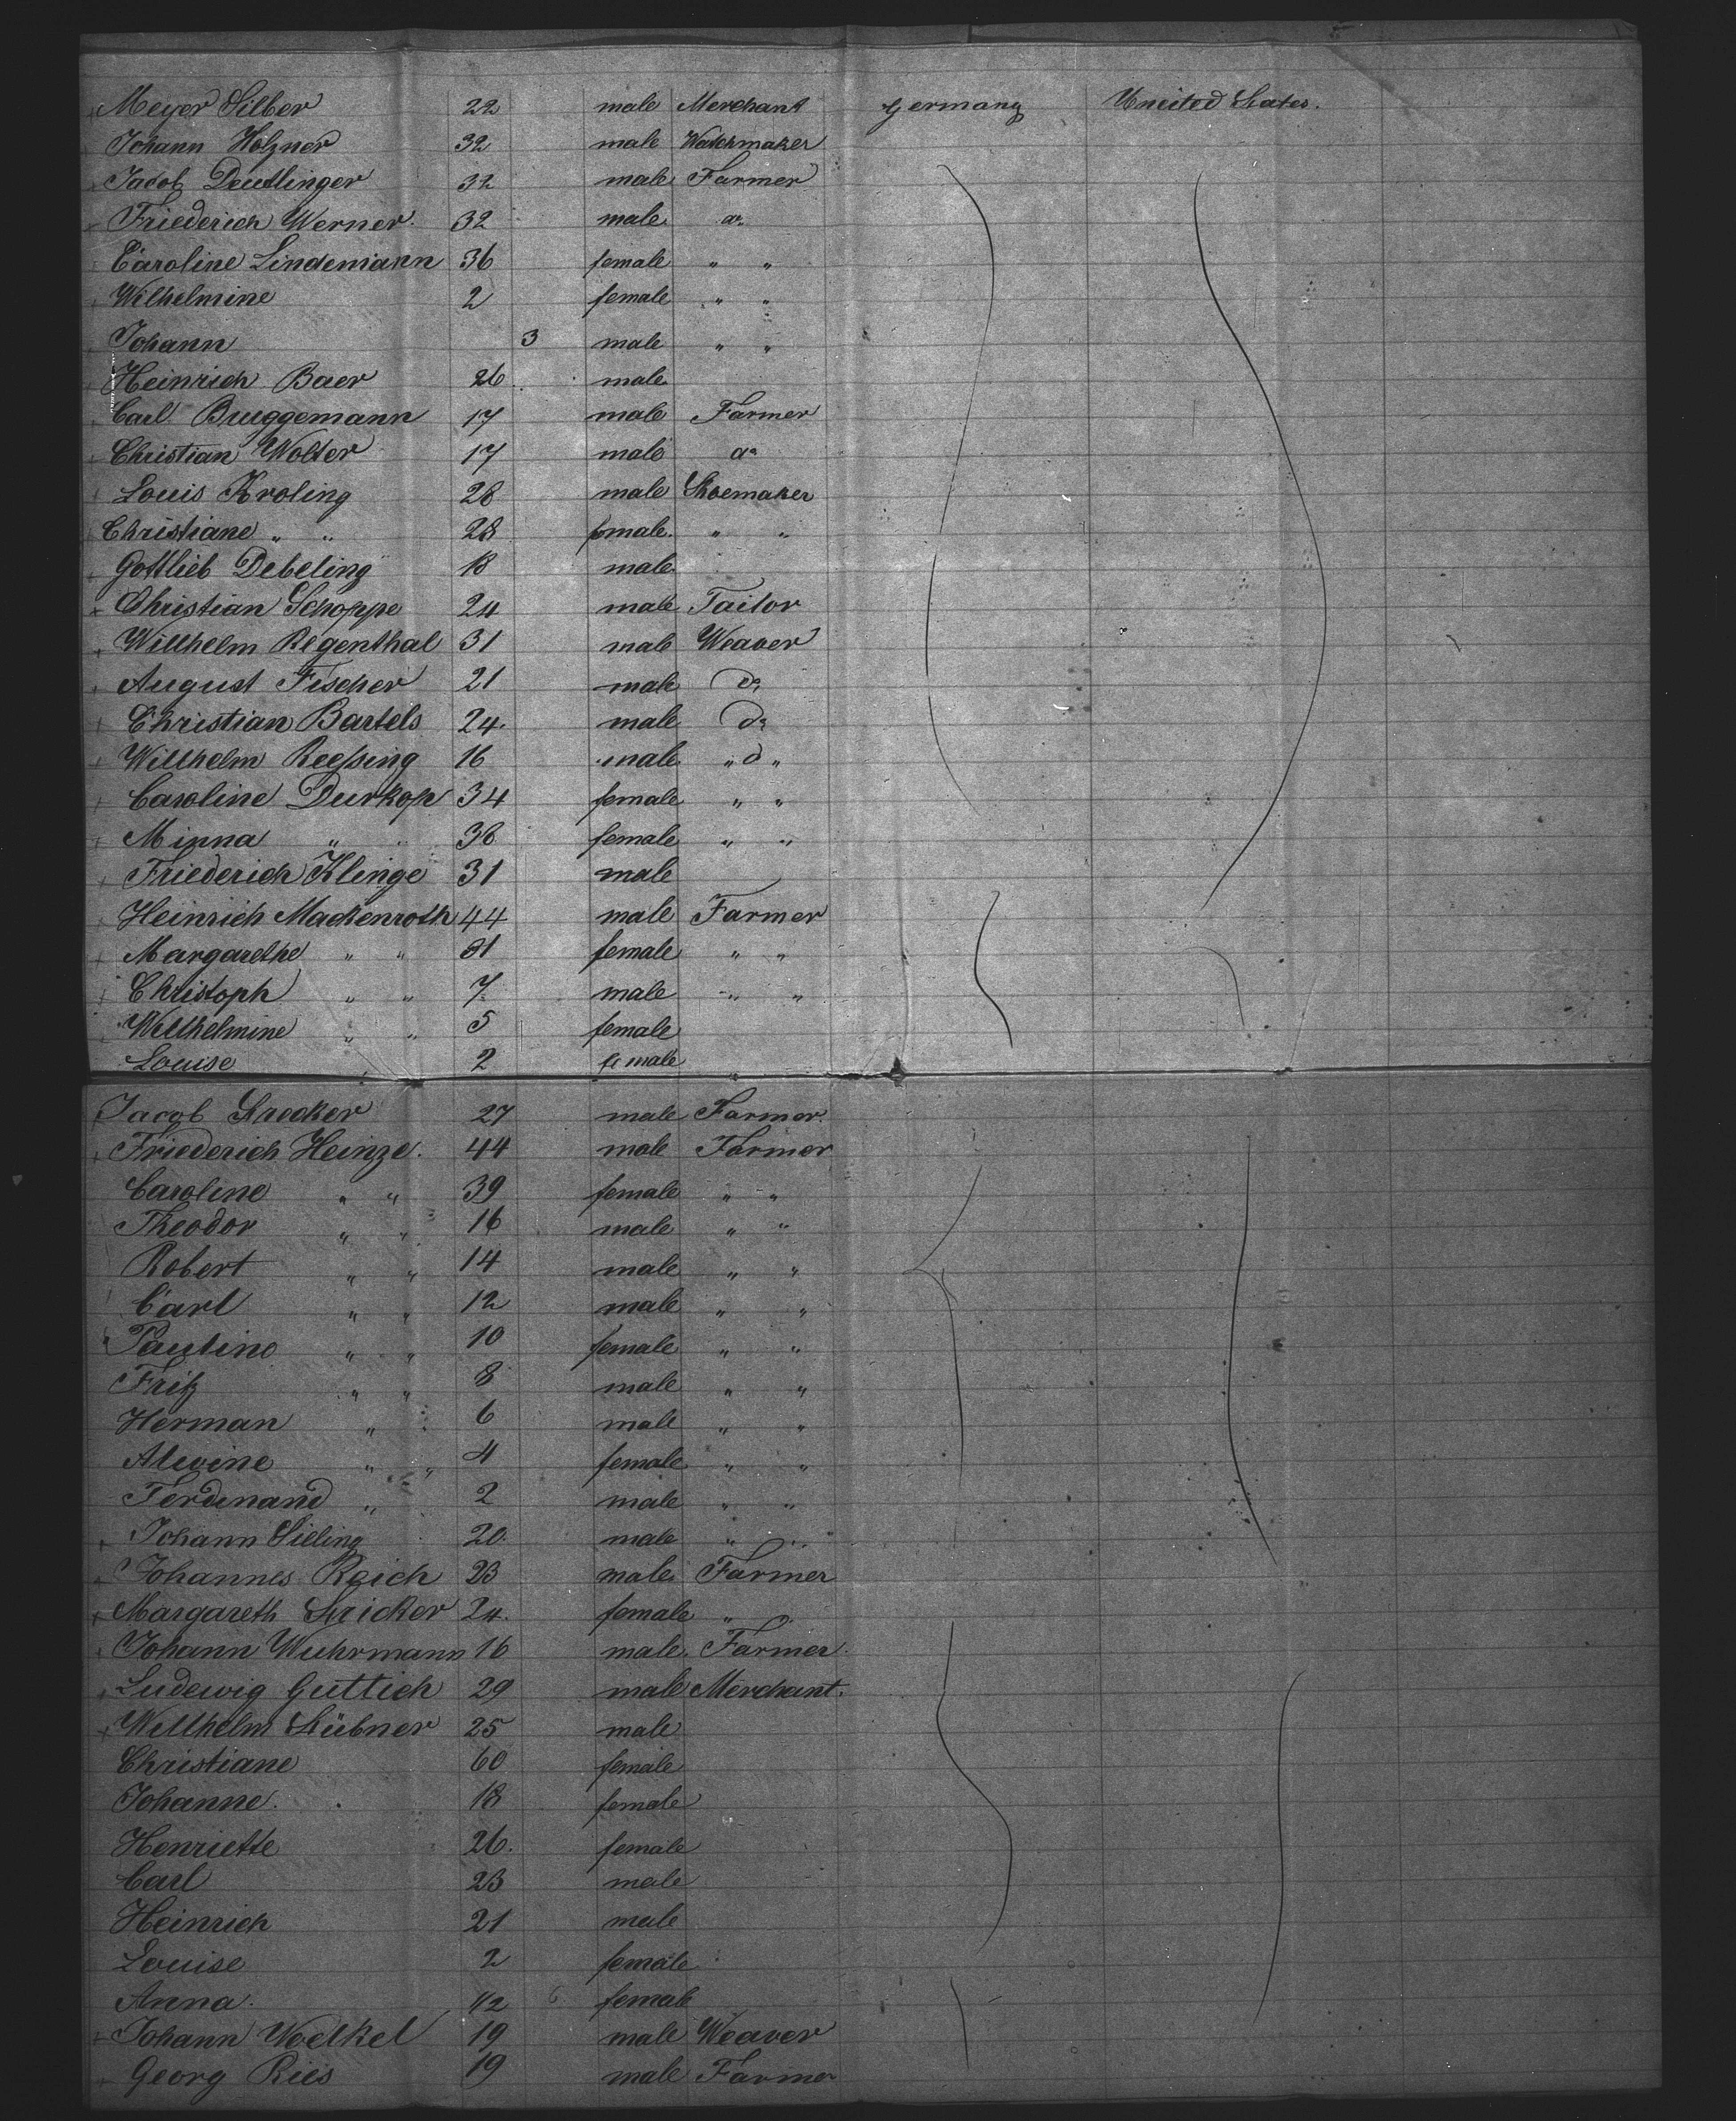 Meyer Silber 22 male Merchant Germany Uneited States.
Johann Holzner 32 male Watchmaker
Jacob Deutlinger 32 male Farmer
Friederich Werner. 32 male do
Caroline Lindemann 36 female " "
Wilhelmine 2 female " "
Johann 3 male " "
Heinrich Baer 26 male
Carl Bruggemann 17 male Farmer
Christian Wolter 17 male do
Louis Kroling 28 male Shoemaker
Christiane " " 28 female " "
Gottlieb Debeling 18 male
Christian Schoppe 24 male Tailor
Willhelm Regenthal 31 male Weaver
August Fischer 21 male do
Christian Bartels 24 male do
Willhelm Reessing 16 male " d "
Caroline Durkop 34 female " "
Minna " " 36 female " "
Friederich Klinge 31 male
Heinrich Mackenroth 44 male Farmer
Margarethe " " 31 female " "
Christoph " " 7 male " "
Willhelmine " " 5 female
Louise " 2 female "
Jacob Strecker 27 male Farmer
Friederich Heinze. 44 male Farmer
Caroline " " 39 female " "
Theodor " " 16 male " "
Robert " " 14 male " "
Carl " " 12 male " "
Pauline " " 10 female " "
Fritz " " 8 male " "
Herman " " 6 male " "
Alwine " " 4 female " "
Ferdinand " 2 male " "
Johann Sieling 20 male " "
Johannes Reich 23 male Farmer
Margareth Stricker 24 female "
Johann Wuhrmann 16 male Farmer
Ludewig Guttich 29 male Merchant.
Willhelm Stübner 25 male
Christiane 60 female
Johanne. 18 female
Henriette 26. female
Carl 23 male
Heinrich 21 male
Louise 2 female
Anna. 1/2 6 female
Johann Woelkel 19 male Weaver
Georg Ries 19 male Farmer